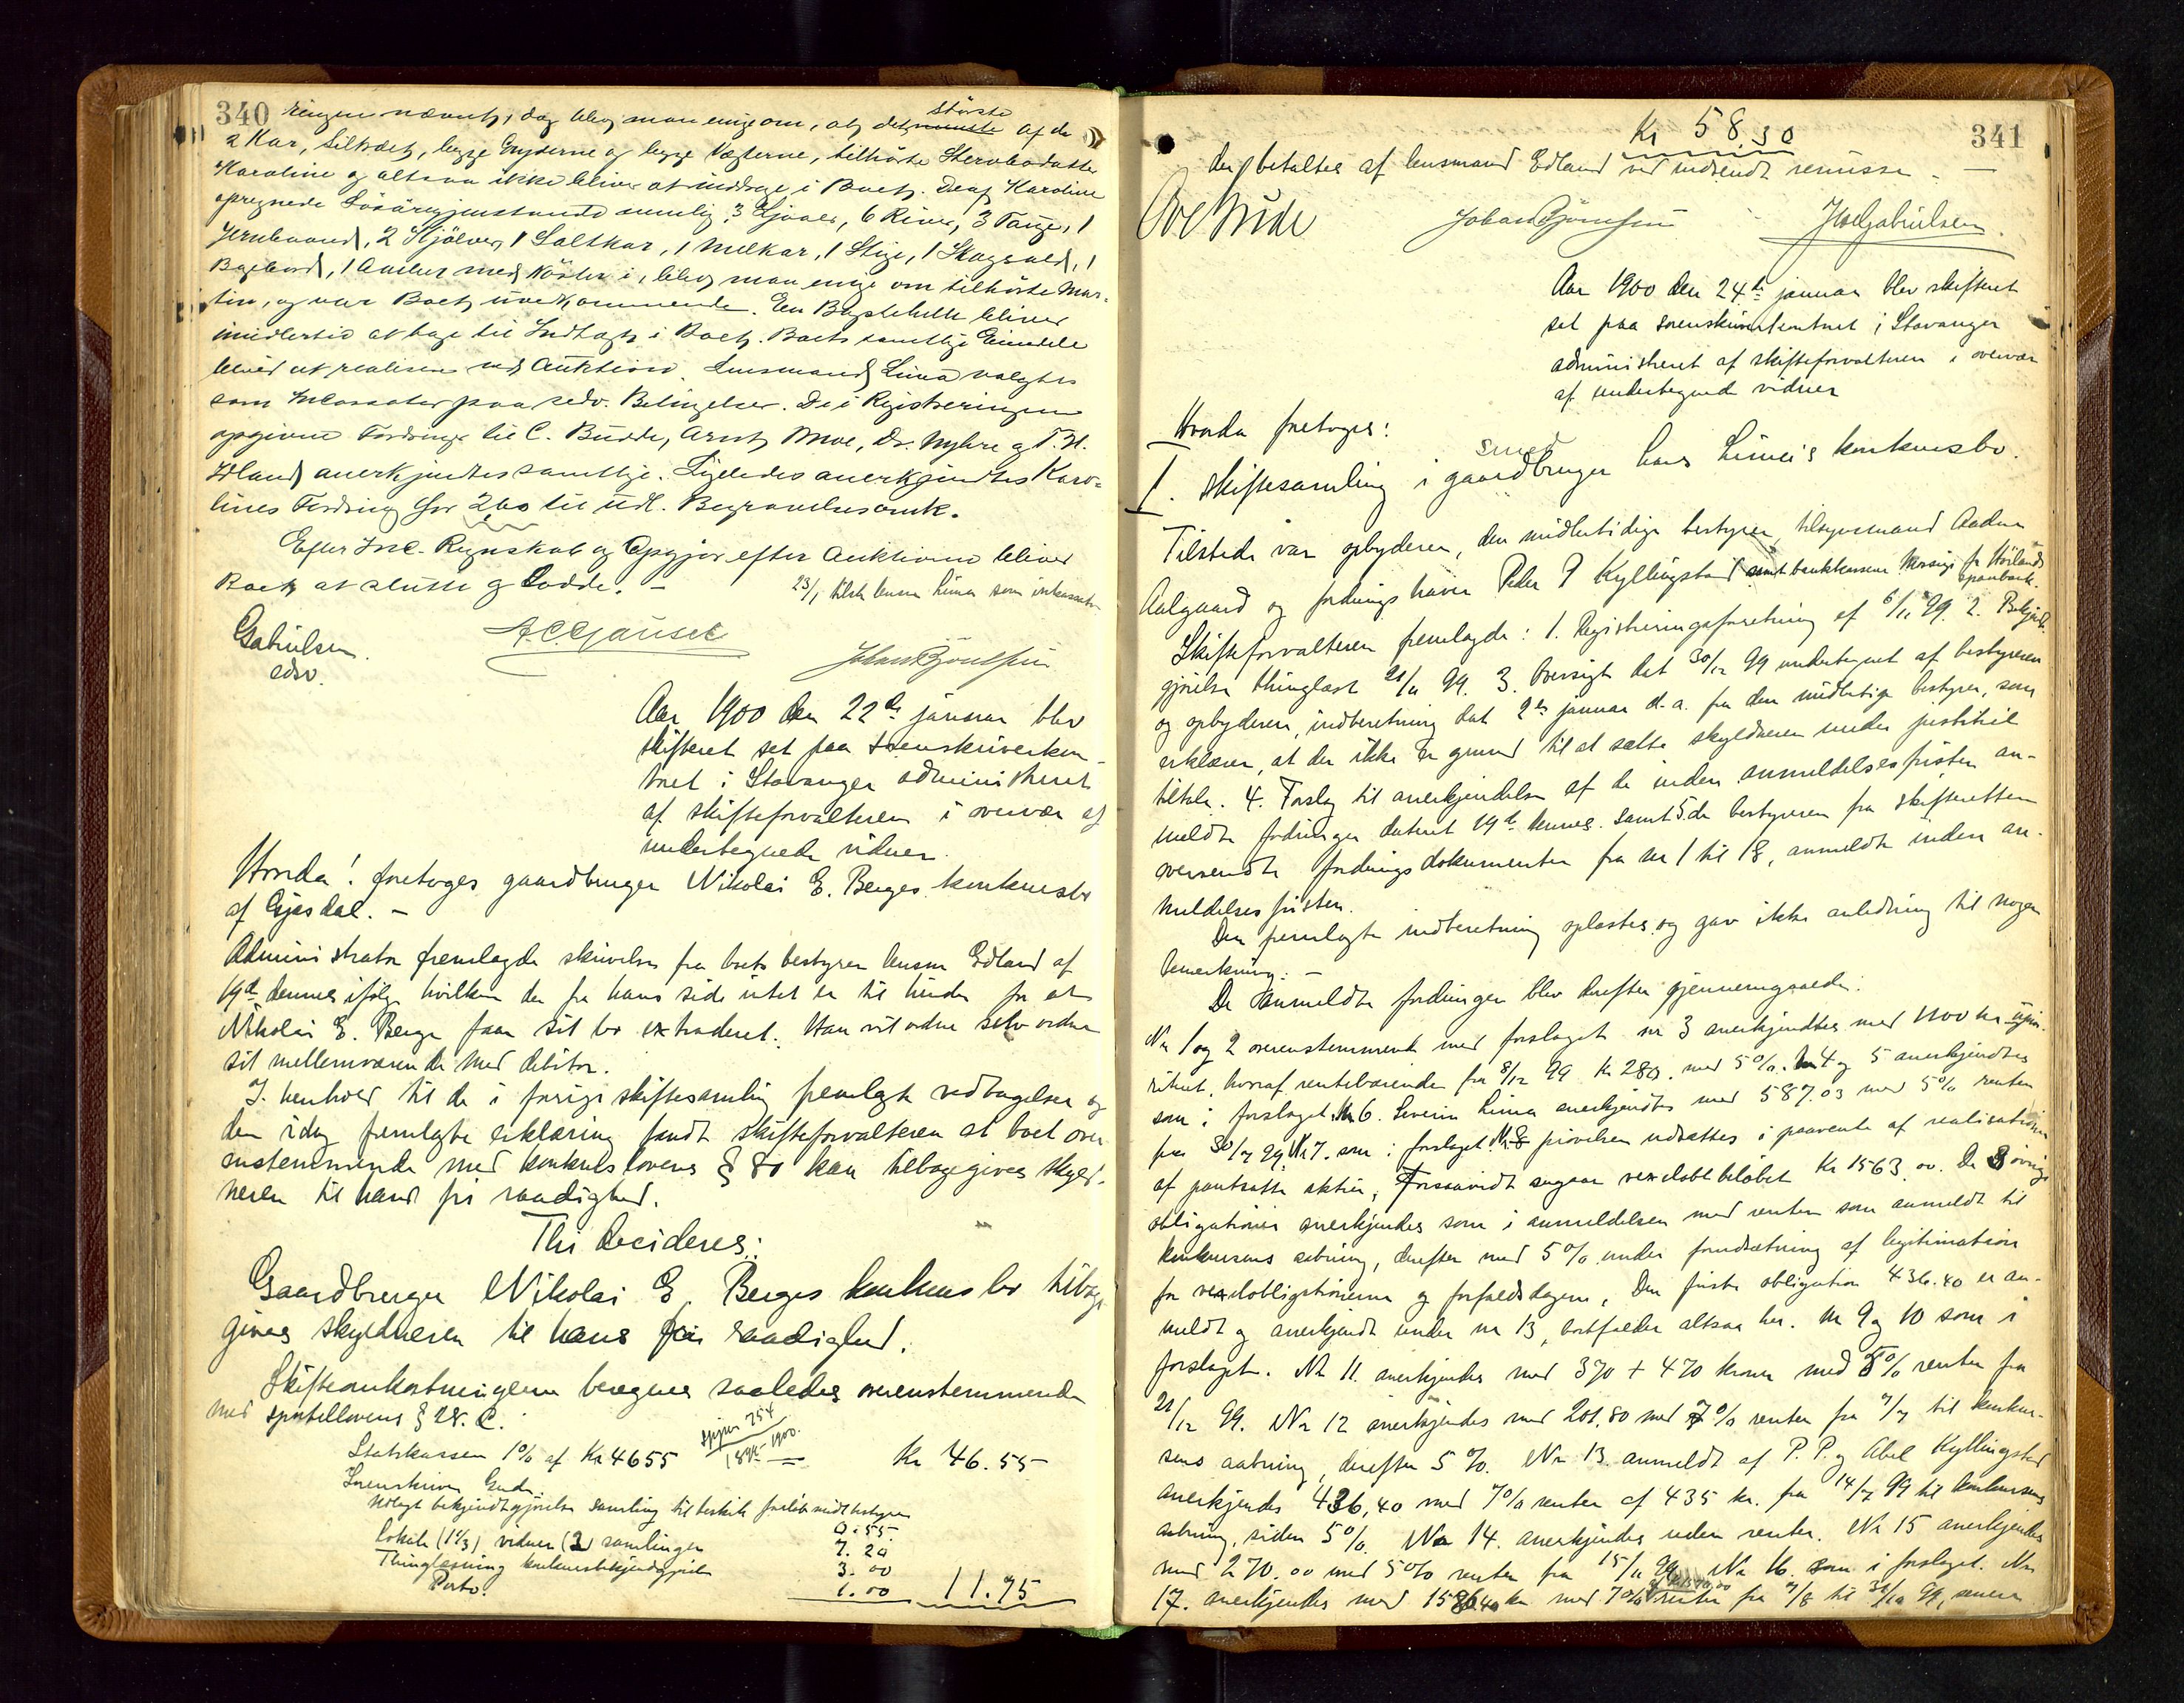 340
ringen nævnt, dog blev man enige om, at det mindste største af de
2 Kar, Silkræt, begge Gryderne og begge Vægterne, tilhörte Stervbodatter
Karoline og altsaa ikke bliver at inddrage i Boet. De af Karoline
opregnede Lösöregjenstande nemlig: 3 Ljaaer, 6 River, 3 Tauge, 1
Jernbaand, 2 Hjölver, 1 Saltkar, 1 Melkar, 1 Stige, 1 Skagsald, 1
Bagebord, 1 Anker med Nöster i, blev man enige om tilhörte Mar-
tin, og var Boet uvedkommende. En Bagstehelle bliver
imidlertid at tage til Indtægt i Boet. Boets samtlige Eiendele
bliver at realisere ved Auktion. Lensmand Lima valgtes
som Incassator paa sedv. Betingelser. De i Registreringen
opgivne Fordringer til C. Budde, Arnt Moe, Dr. Myhre og T. H.
Idland anerkjendtes samtlige. Ligeledes anerkjendtes Karo-
lines Fordring for 200 til Udl. Begravelsesomk.
Efter Inc. Regnskab og Opgjør efter Auktionen bliver
Boet at slutte og lodde. —
23/1 tilsk. lensm Lima som inkassator
Gabrielsen
edsv.
Aar 1900 den 22de januar blev
skifteret set paa sorenskriverkon-
toret i Stavanger administreret
af skifteforvalteren i overvær af
undertegnede vidner.
Hvorda! foretoges gaardbruger Nikolai E. Berges konkursbo
af Gjesdal. —
Administrator fremlagde skrivelse fra boets bestyrer lensm Edland af
19de dennes ifølge hvilken der fra hans side intet er til hinder for at
Nikolai E. Berge faar sit bo extraderet. Han vil ordne selv ordne
sit mellemværende med debitor.
I henhold til de i forrige skiftesamling fremlagte vedtagelser og
den idag fremlagte erklæring fandt skifteforvalteren at boet over
ensstemmende med konkurslovens § 80 kan tilbagegives skyld-
neren til hans fri raadighed.
Thi decideres:
Gaardbruger Nikolai E. Berges konkursbo tilbage
gives skyldneren til hans fri raadighed.
Skifteomkostningerne beregnes saaledes overensstemmende
med sportellovens § 28. C.
Statskassen 1% af Kr 4655 Kr 46.55
Sorenskriver Gude.
Udlagt bekjendtgjørelse samling til beskik. foreløb midt bestyrer
0.55
lokale (1 1/3) vidner (2) samlinger 7.20
Thinglæsning konkursbekjendtgjørelse 3.00
Porto. 1.00 11.75
341
Kr 58,30
der betaltes af lensmand Edland ved indsendt remisse. —
Aar 1900 den 24de januar blev skifteret
set paa sorenskriverkontoret i Stavanger
administreret af skifteforvalteren i overvær
af undertegnede vidner
Hvorda foretoges:
I. Skiftesamling i gaardbruger smed Hans Limeis konkursbo.
Tilstede var opbyderen, den midlertidige bestyrer, tilsynsmand Aadne
Aalgaard og fordringshaver Peder P Kyllingstad samt bankkasserer fra Høilands
sparebank.
Skifteforvalteren fremlagde: 1. Registreringsforretning af 6/11 99. 2. Bekjendt-
gjørelse thinglæst 21/11 99. 3. Oversigt dat 30/12 99 undertegnet af bestyreren
og opbyderen, indberetning dat 2den januar d. a. fra den midlertidige bestyrer, som
erklærer, at der ikke er grund til at sætte skyldneren under justitiel
tiltale. 4. Forslag til anerkjendelse af de inden anmeldelsesfristen an-
meldte fordringer dateret 19de dennes. samt 5. de bestyreren fra skifteretten
oversendte fordringsdokumenter fra nr 1 til 18, anmeldte inden an-
meldelsesfristen.
Den fremlagte indberetning oplæstes og gav ikke anledning til nogen
bemerkning. —
De anmeldte fordringer blev derefter gjennemgaaede:
Nr 1 og 2 overensstemmende med forslaget nr 3 anerkjendtes med 1100 kr uprio-
riteret, hvoraf rentebærende fra 8/12 99 Kr 280. med 5%. Nr 4 og 5 anerkjendtes
som i forslaget. Nr 6. Severin Lima anerkjendtes med 587.03 med 5% renter
fra 30/7 99. Nr 7. som i forslaget. Nr 8 prøvelsen udsættes i paavente af realisationen
af pantsatte aktier, forsaavidt angaar vexelobl beløbet Kr 1563,00. De 3 øvrige
obligationer anerkjendes som i anmeldelsen med renter som anmeldt til
konkursens aabning, derefter med 5% under forudsætning af legitimation
for vexelobligationerne og forfaldsdagene, Den første obligation 436.40 er an-
meldt og anerkjendt under nr 13, bortfalder altsaa her. Nr 9 og 10 som i
forslaget. Nr 11. anerkjendes med 370 + 470 kroner med 5% renter fra
21/12 99. Nr 12 anerkjendes med 201,80 med 7% renter fra 7/7 til konkur-
sens aabning, derefter 5%. Nr 13. anmeldt af P. P. og Abel Kyllingstad
anerkjendes 436,40 med 7% renter af 435 kr. fra 14/7 99 til konkursens
aabning, siden 5%. Nr 14. anerkjendes uden renter. Nr 15 anerkjendes
med 270.00 med 5% renter fra 15/11 99. Nr 16. som i forslaget. Nr
17. anerkjendes med kr med 7% renter fra 7/8 til 30/10 99, senere